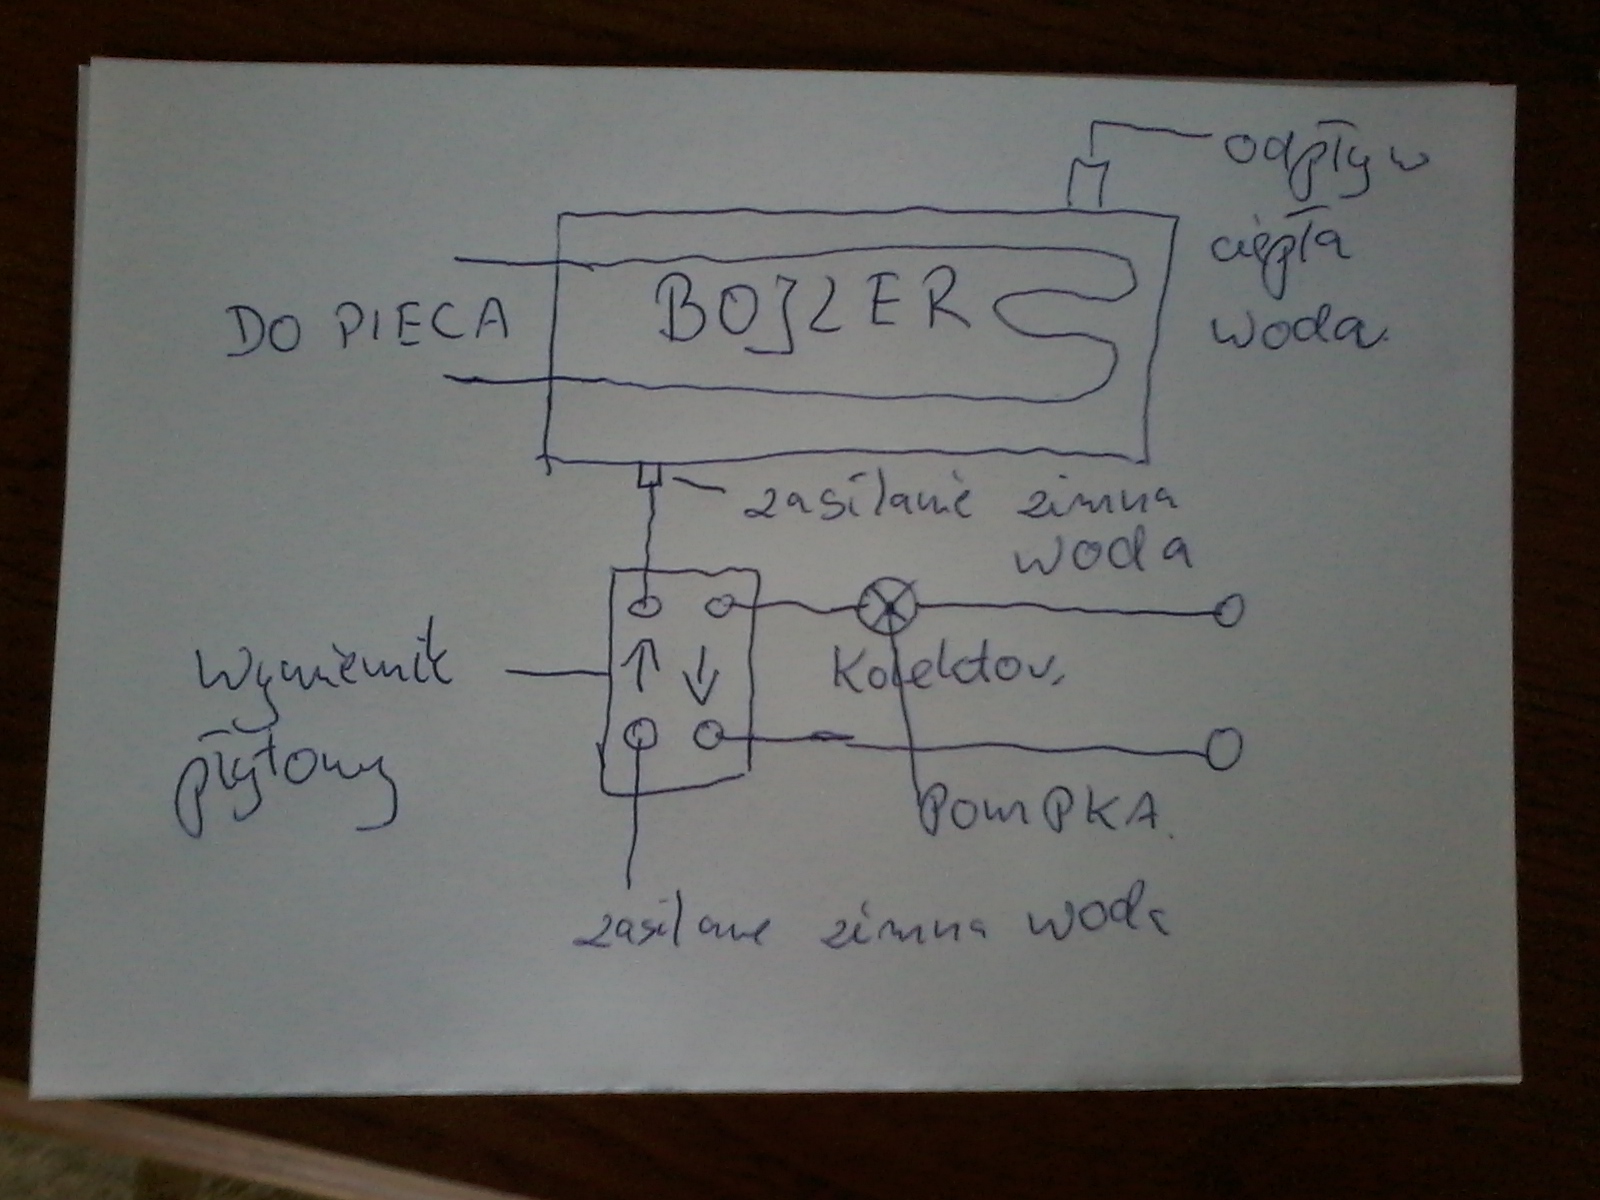 odpływ
ciepła
woda.
DO PIECA
BOJLER
zasilanie zimna
woda
Wymiennik
płytowy
Kolektor,
POMPKA.
zasilane zimna woda